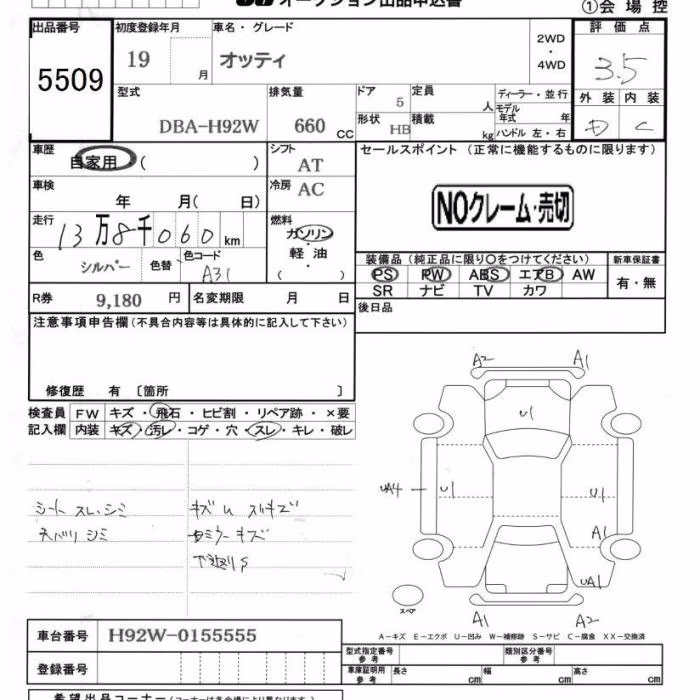 オークション出品申込書
①会場控
出品番号 初度登録年月 車名・グレード 2WD・4WD 評価点
5509 19 月 オッティ 3.5
型式 排気量 ドア 定員 ディーラー・並行 外装 内装
DBA-H92W 660 CC 5 人 モデル年式 年 D C
形状 HB 積載 kg ハンドル 左・右
車歴 自家用 ( ) シフト AT セールスポイント (正常に機能するものに限ります)
車検 年 月( 日) 冷房 AC NOクレーム・売切
走行 13万8千060km 燃料 ガソリン・軽油 ( )
色 シルバー 色替 色コード A31
装備品 (純正品に限り〇をつけてください) 新車保証書
PS PW ABS エアB AW 有・無
SR ナビ TV カワ
R券 9,180 円 名変期限 月 日 後日品
注意事項申告欄(不具合内容等は具体的に記入して下さい)
修復歴 有 〔箇所 〕
検査員 FW キズ・飛石・ヒビ割・リペア跡・×要
記入欄 内装 キズ・汚レ・コゲ・穴・スレ・キレ・破レ
シート スレ、シミ
天バリ シミ
A2 A1
U1
UA4 U1 U1
A1
UA1
スペア
A1 A2
A－キズ E－エクボ U－凹み W－補修跡 S－サビ C－腐食 XX－交換済
車台番号 H92W-0155555
型式指定番号 参考 類別区分番号 参考
登録番号 車庫証明用 参考 長さ cm 幅 cm 高さ cm
希望出品コーナー